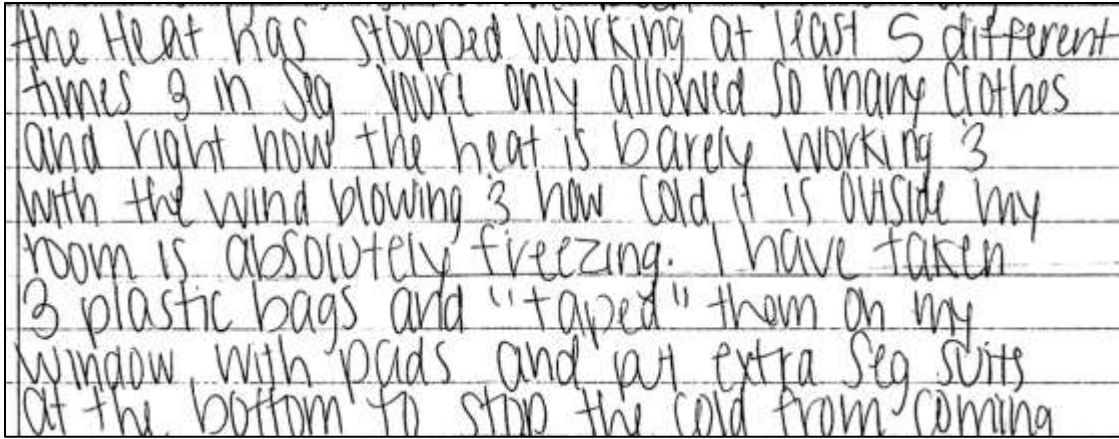 the Heat has stopped working at least 5 different
times & in Seg youre only allowed so many Clothes
and right now the heat is barely working &
with the wind blowing & how cold it is outside my
room is absolutely freezing. I have taken
3 plastic bags and "taped" them on my
window with pads and put extra Seg suits
at the bottom to stop the cold from coming